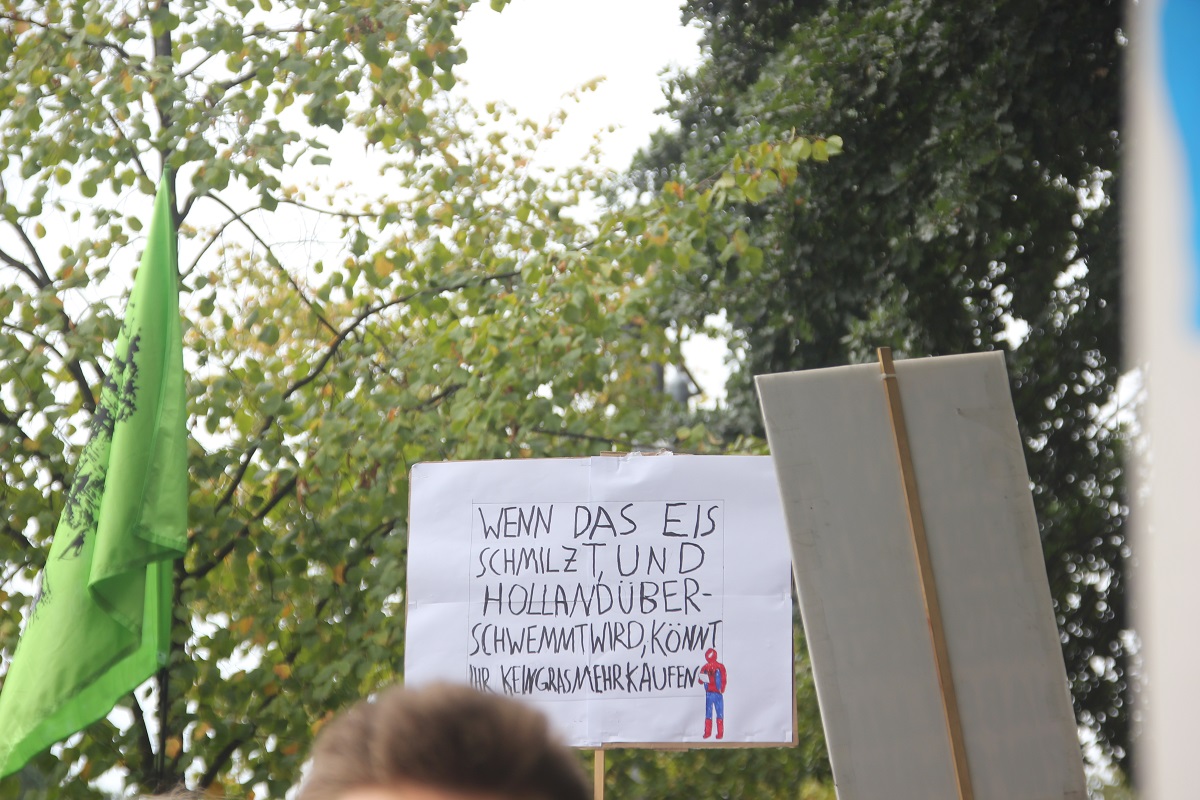 WENN DAS EIS
SCHMILZT, UND
HOLLAND ÜBER-
SCHWEMMT WIRD, KÖNNT
IHR KEIN GRAS MEHR KAUFEN